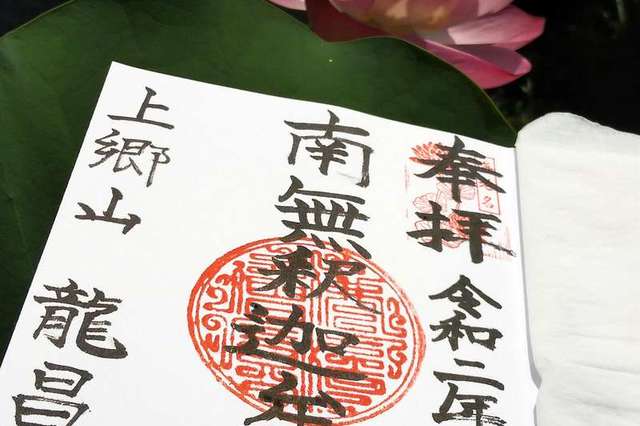 奉拝 令和二年
南無釈迦牟
上郷山 龍昌